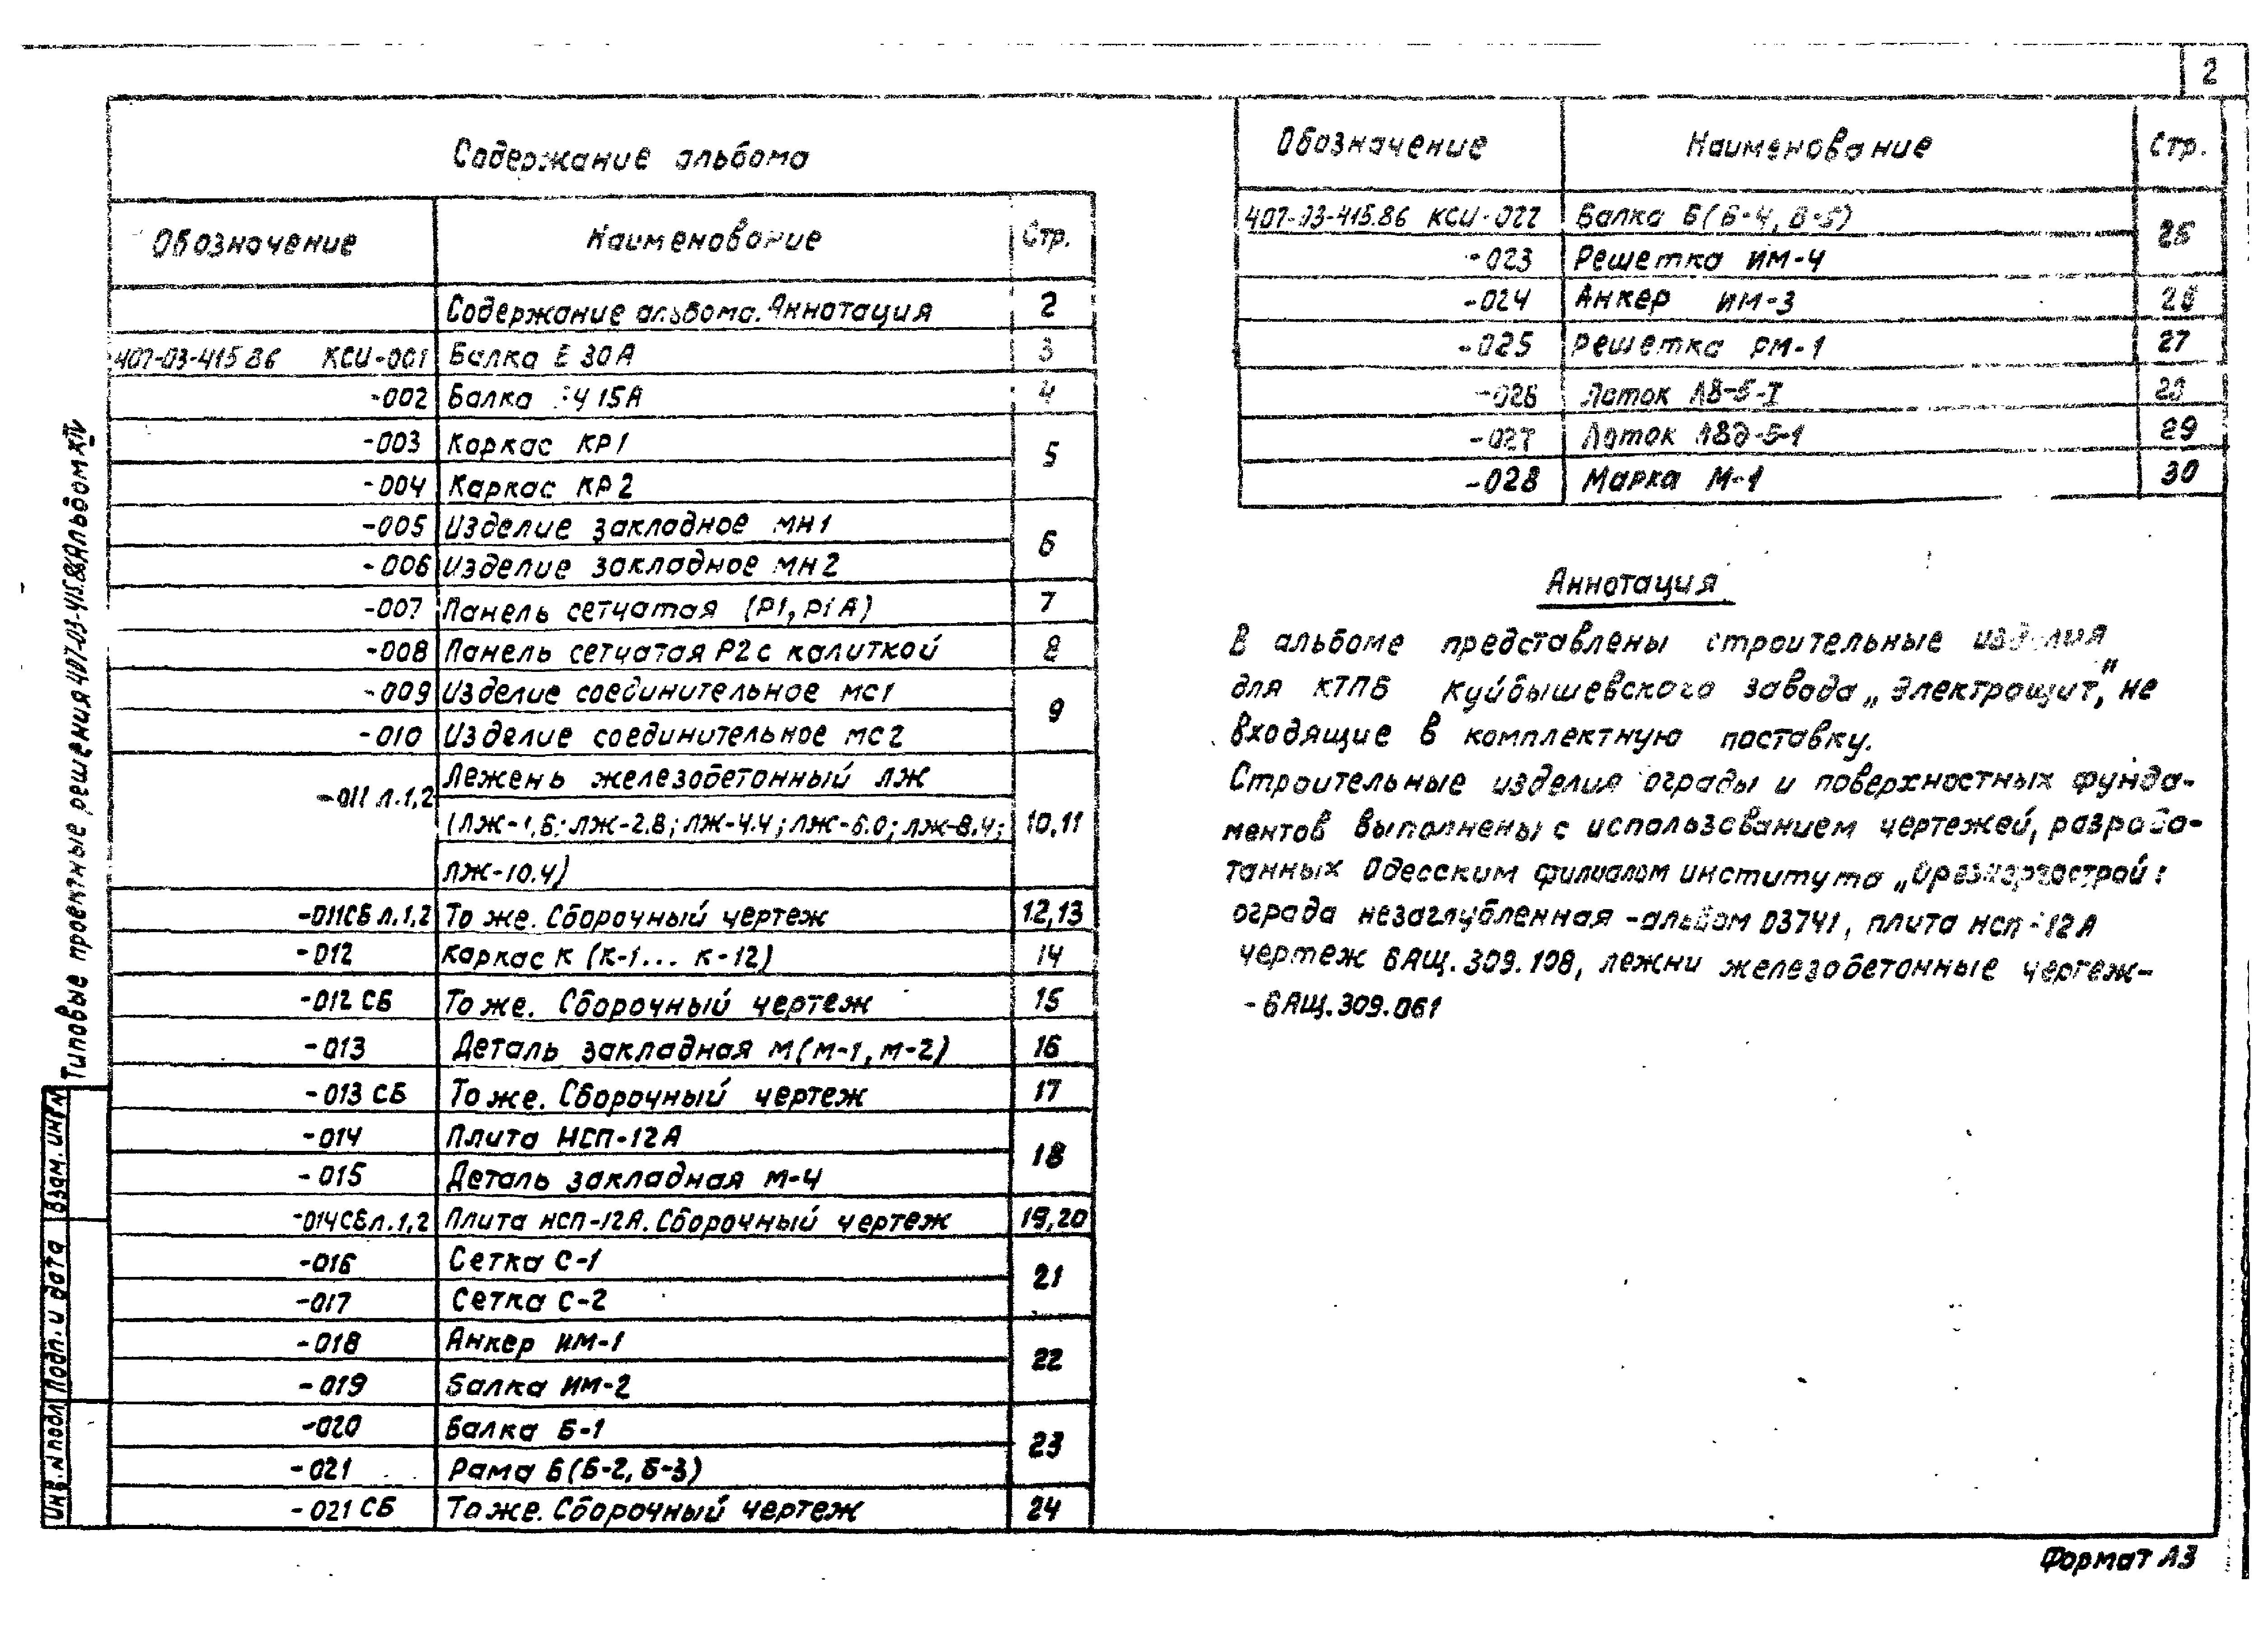 2
Содержание альбома
Обозначение Наименование Стр.
Содержание альбома. Аннотация 2
407-03-415.86 КСИ-001 Балка 30А 3
-002 Балка 15А 4
-003 Каркас КР1 5
-004 Каркас КР2
-005 Изделие закладное МН1 6
-006 Изделие закладное МН2
-007 Панель сетчатая (Р1, Р1А) 7
-008 Панель сетчатая Р2 с калиткой 8
-009 Изделие соединительное МС1 9
-010 Изделие соединительное МС2
-011 л.1,2 Лежень железобетонный ЛЖ
(ЛЖ-1,6; ЛЖ-2.8; ЛЖ-4.4; ЛЖ-6.0; ЛЖ-8.4; 10,11
ЛЖ-10.4)
-011СБ л.1,2 То же. Сборочный чертеж 12,13
-012 Каркас К (К-1... К-12) 14
-012 СБ То же. Сборочный чертеж 15
-013 Деталь закладная М(М-1, М-2) 16
-013 СБ То же. Сборочный чертеж 17
-014 Плита НСП-12А 18
-015 Деталь закладная М-4
-014СБ л.1,2 Плита НСП-12А. Сборочный чертеж 19,20
-016 Сетка С-1 21
-017 Сетка С-2
-018 Анкер ИМ-1 22
-019 Балка ИМ-2
-020 Балка Б-1 23
-021 Рама Б(Б-2, Б-3)
-021 СБ То же. Сборочный чертеж 24
Обозначение Наименование Стр.
407-03-415.86 КСИ-022 Балка Б(Б-4, Б-5)
-023 Решетка ИМ-4
-024 Анкер ИМ-3
-025 Решетка РМ-1 27
-026 Лоток
-027 Лоток 29
-028 Марка М-1 30
Аннотация
В альбоме представлены строительные изделия
для КТПБ Куйбышевского завода „Электрощит", не
входящие в комплектную поставку.
Строительные изделия ограды и поверхностных фунда-
ментов выполнены с использованием чертежей, разрабо-
танных Одесским филиалом института „Оргэнергострой:
ограда незаглубленная -альбом 03741, плита НСП-12А
чертеж БАЩ.309.108, лежни железобетонные чертеж-
-БАЩ.309.061
Типовые проектные решения 407-03-415.86 Альбом XIV
Взам. инв. №
Подп. и дата
Инв. № подл
Формат А3